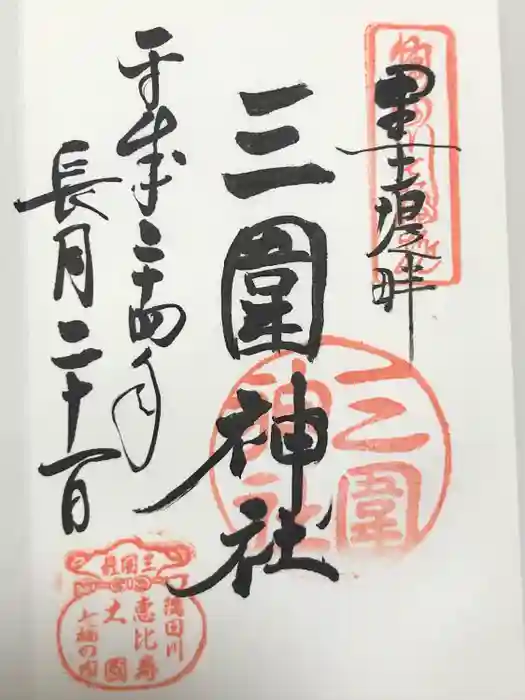 墨堤畔
三圍神社
平成二十四年
長月二十一日
三圍
神社
三圍
隅田川
恵比寿
大國
七福の内